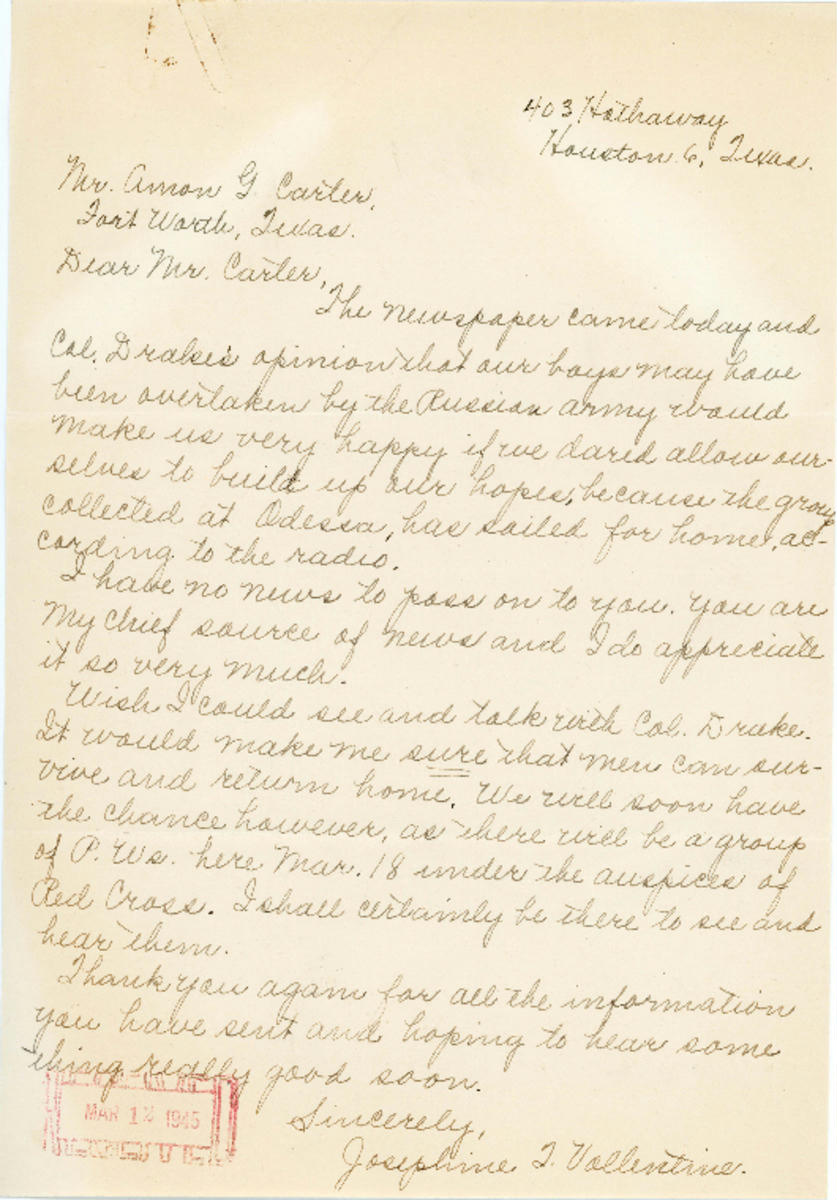 403 Hathaway
Houston 6, Texas.
Mr. Amon G. Carter,
Fort Worth, Texas.
Dear Mr. Carter,
The newspaper came today and
Col. Drake's opinion that our boys may have
been overtaken by the Russian army would
make us very happy if we dared allow our-
selves to build up our hopes, because the group
collected at Odessa, has sailed for home, ac-
cording to the radio.
I have no news to pass on to you. You are
my chief source of news and I do appreciate
it so very much.
Wish I could see and talk with Col. Drake.
It would make me sure that men can sur-
vive and return home. We will soon have
the chance however, as there will be a group
of P.Ws. here Mar. 18 under the auspices of
Red Cross. I shall certainly be there to see and
hear them.
Thank you again for all the information
you have sent and hoping to hear some
thing really good soon.
Sincerely,
Josephine T. Vollentine.
MAR 1 1945